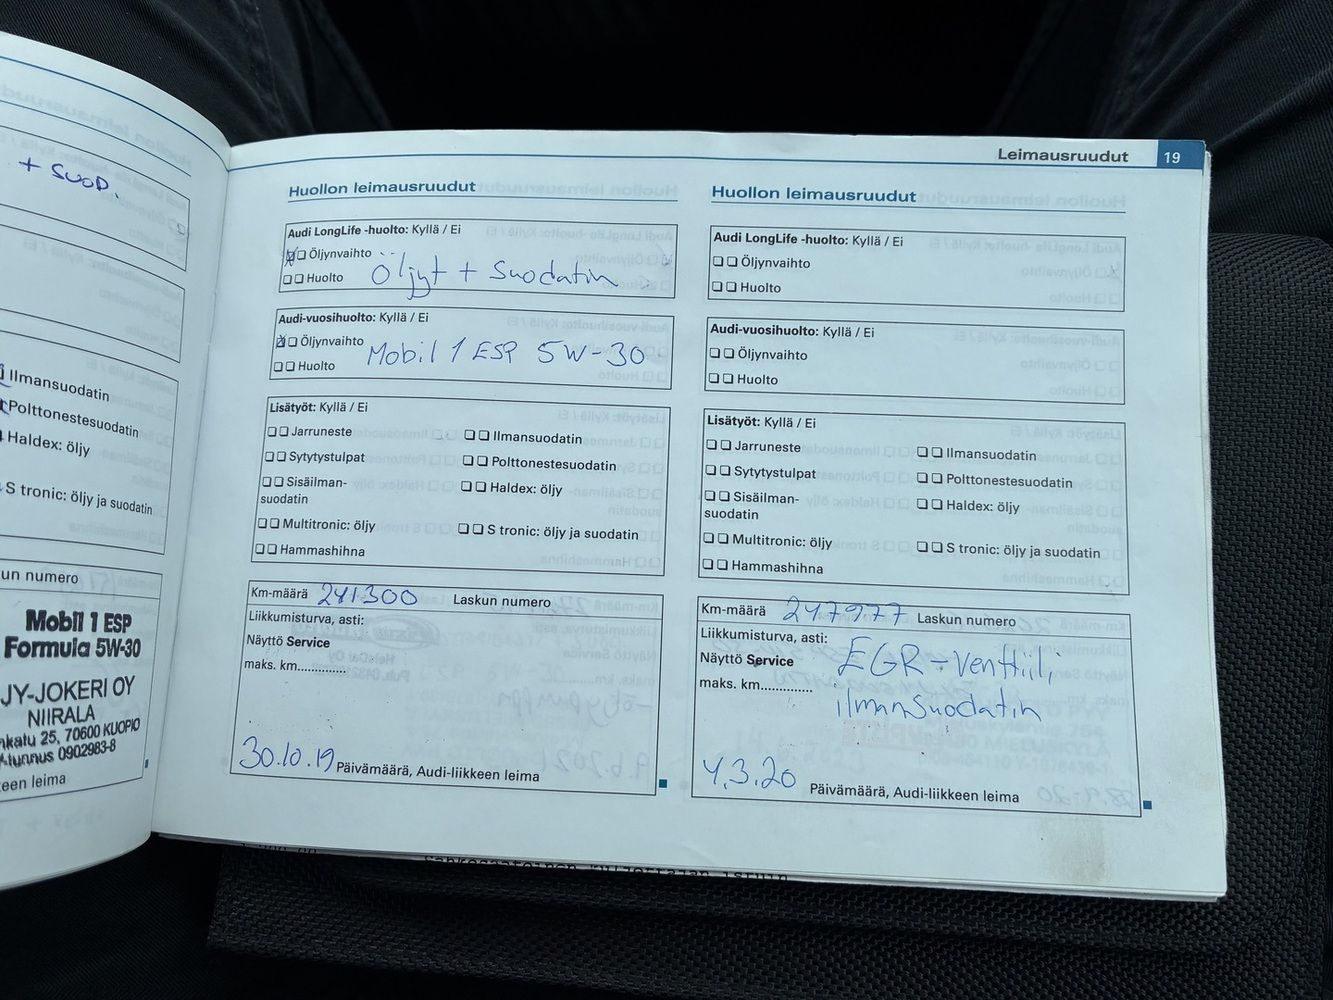 + suod.
Ilmansuodatin
Polttonestesuodatin
Haldex: öljy
S tronic: öljy ja suodatin
un numero
Mobil 1 ESP
Formula 5W-30
JY-JOKERI OY
NIIRALA
nkatu 25, 70600 KUOPIO
Y-tunnus 0902983-8
een leima
Leimausruudut 19
Huollon leimausruudut
Audi LongLife -huolto: Kyllä / Ei
Öljynvaihto
Huolto
Öljyt + suodatin
Audi-vuosihuolto: Kyllä / Ei
Öljynvaihto
Huolto
Mobil 1 ESP 5W-30
Lisätyöt: Kyllä / Ei
Jarruneste Ilmansuodatin
Sytytystulpat Polttonestesuodatin
Sisäilman- Haldex: öljy
suodatin
Multitronic: öljy S tronic: öljy ja suodatin
Hammashihna
Km-määrä 241300 Laskun numero
Liikkumisturva, asti:
Näyttö Service
maks. km..............
30.10.19 Päivämäärä, Audi-liikkeen leima
Huollon leimausruudut
Audi LongLife -huolto: Kyllä / Ei
Öljynvaihto
Huolto
Audi-vuosihuolto: Kyllä / Ei
Öljynvaihto
Huolto
Lisätyöt: Kyllä / Ei
Jarruneste Ilmansuodatin
Sytytystulpat Polttonestesuodatin
Sisäilman- Haldex: öljy
suodatin
Multitronic: öljy S tronic: öljy ja suodatin
Hammashihna
Km-määrä 247977 Laskun numero
Liikkumisturva, asti:
Näyttö Service EGR-venttiili
maks. km.............. ilmansuodatin
4.3.20 Päivämäärä, Audi-liikkeen leima